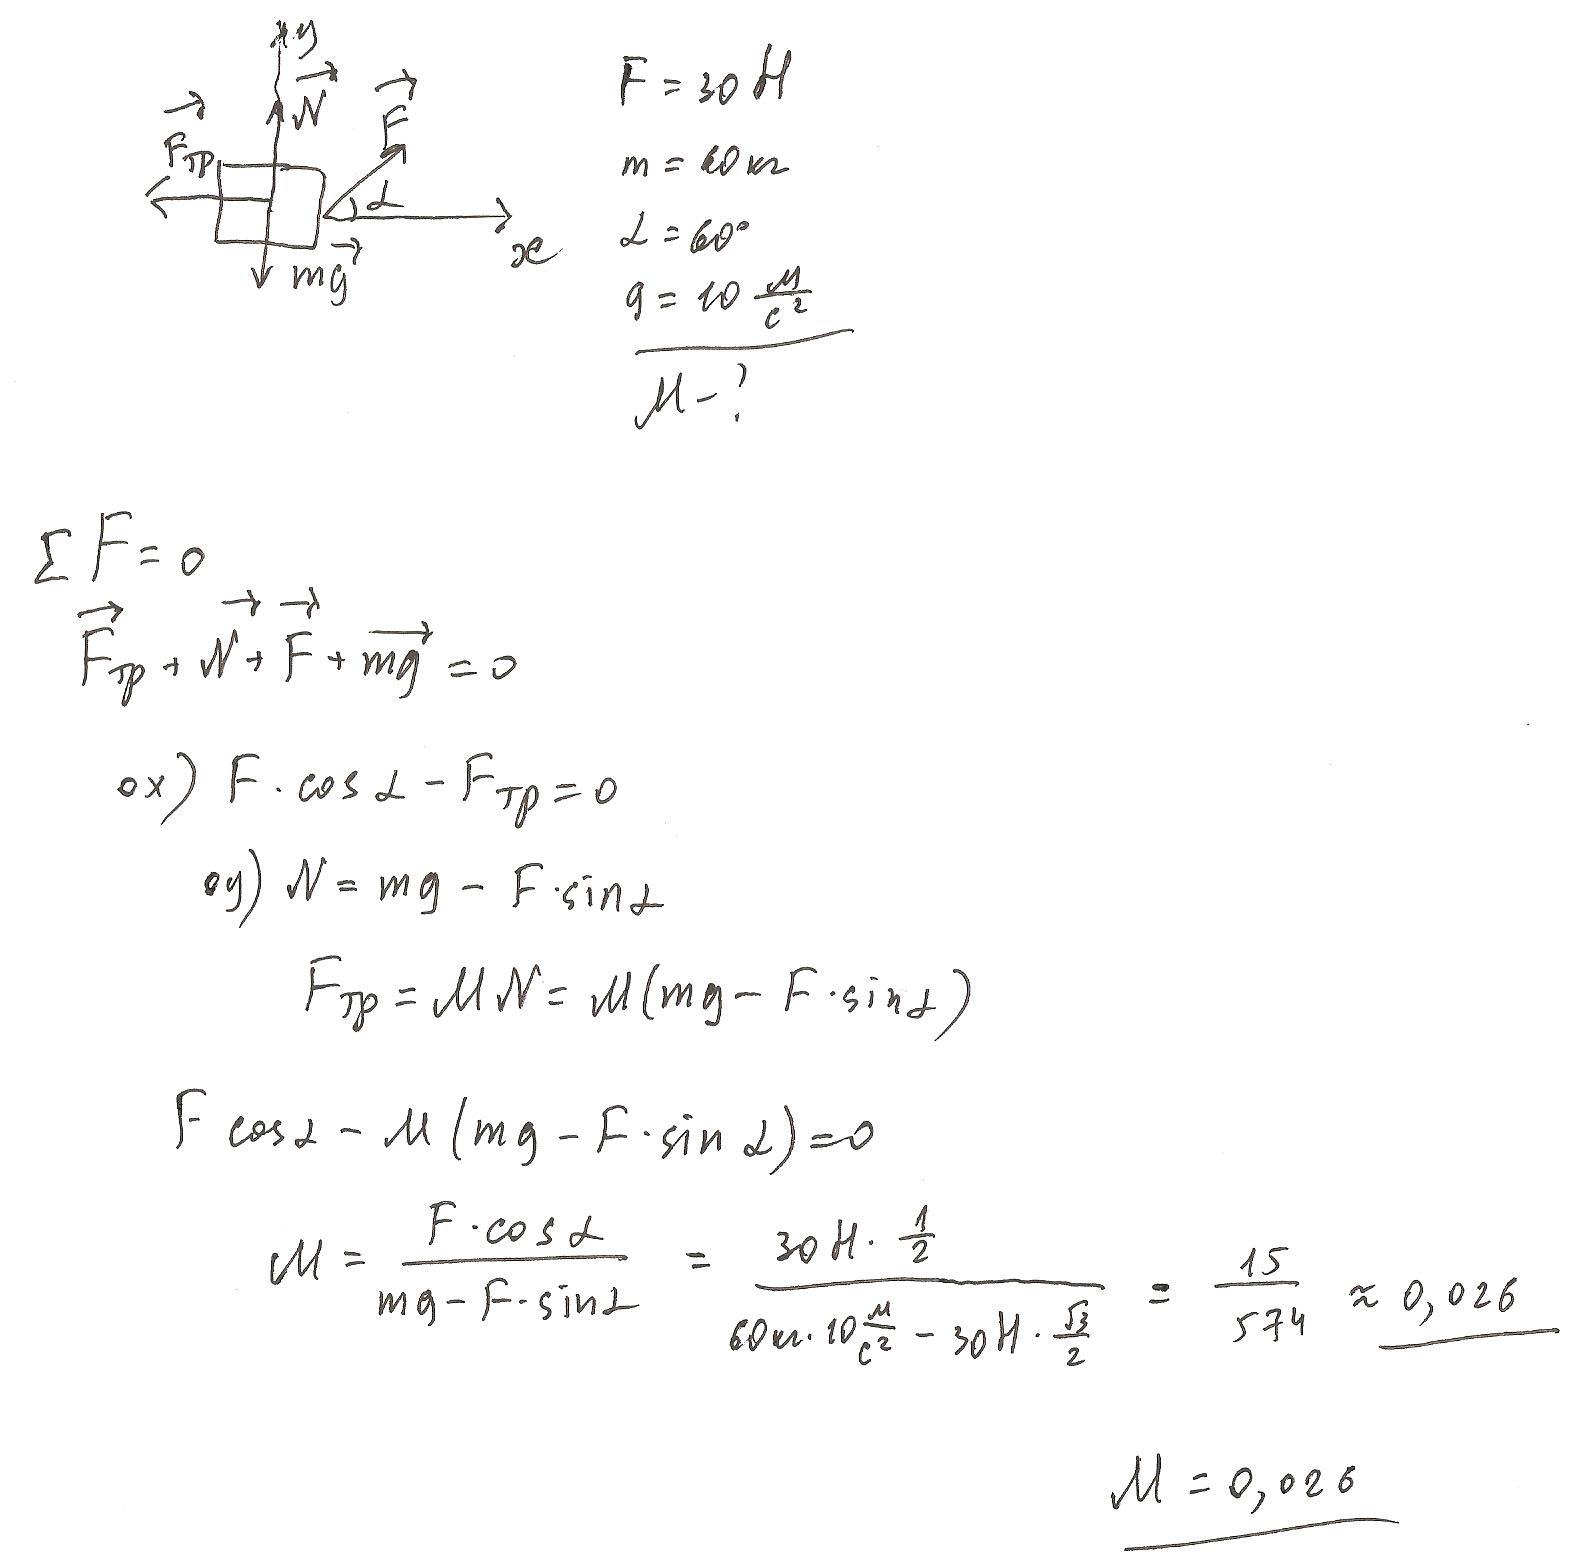 y
N
F
Fтр
α
mg
x
F = 30 Н
m = 60 кг
α = 60°
g = 10 м/с²
μ - ?
Σ F = 0
Fтр + N + F + mg = 0
ox) F · cos α - Fтр = 0
oy) N = mg - F · sin α
Fтр = μN = μ(mg - F · sin α)
F cos α - μ(mg - F · sin α) = 0
μ = F · cos α / mg - F · sin α = 30 Н · 1/2 / 60 кг · 10 м/с² - 30 Н · √3/2 = 15/574 ≈ 0,026
μ = 0,026